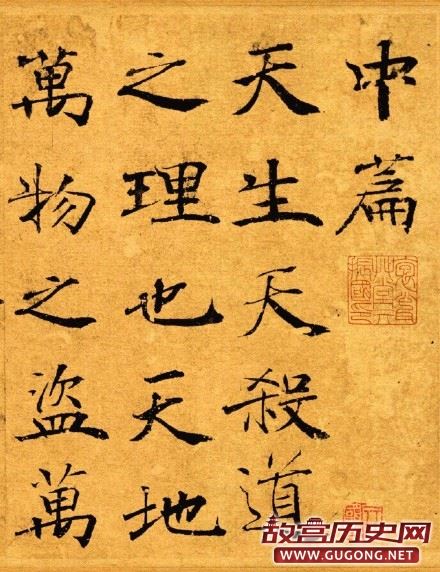 中篇
天生天殺道
之理也天地
萬物之盜萬
故宫历史网
WWW.GUGONG.NET